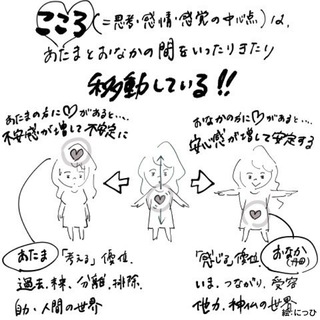 こころ(=思考・感情・感覚の中心点)は、
あたまとおなかの間をいったりきたり
移動している!!
あたまの方に♡があると…。
不安感が増して不安定に
おなかの方に♡があると…。
安心感が増して安定する
あたま 「考える」優位。
過去、未来、分離、排除。
自力・人間の世界
「感じる」優位。 おなか(丹田)
いま、つながり、受容
他力、神仏の世界
絵:にっひ